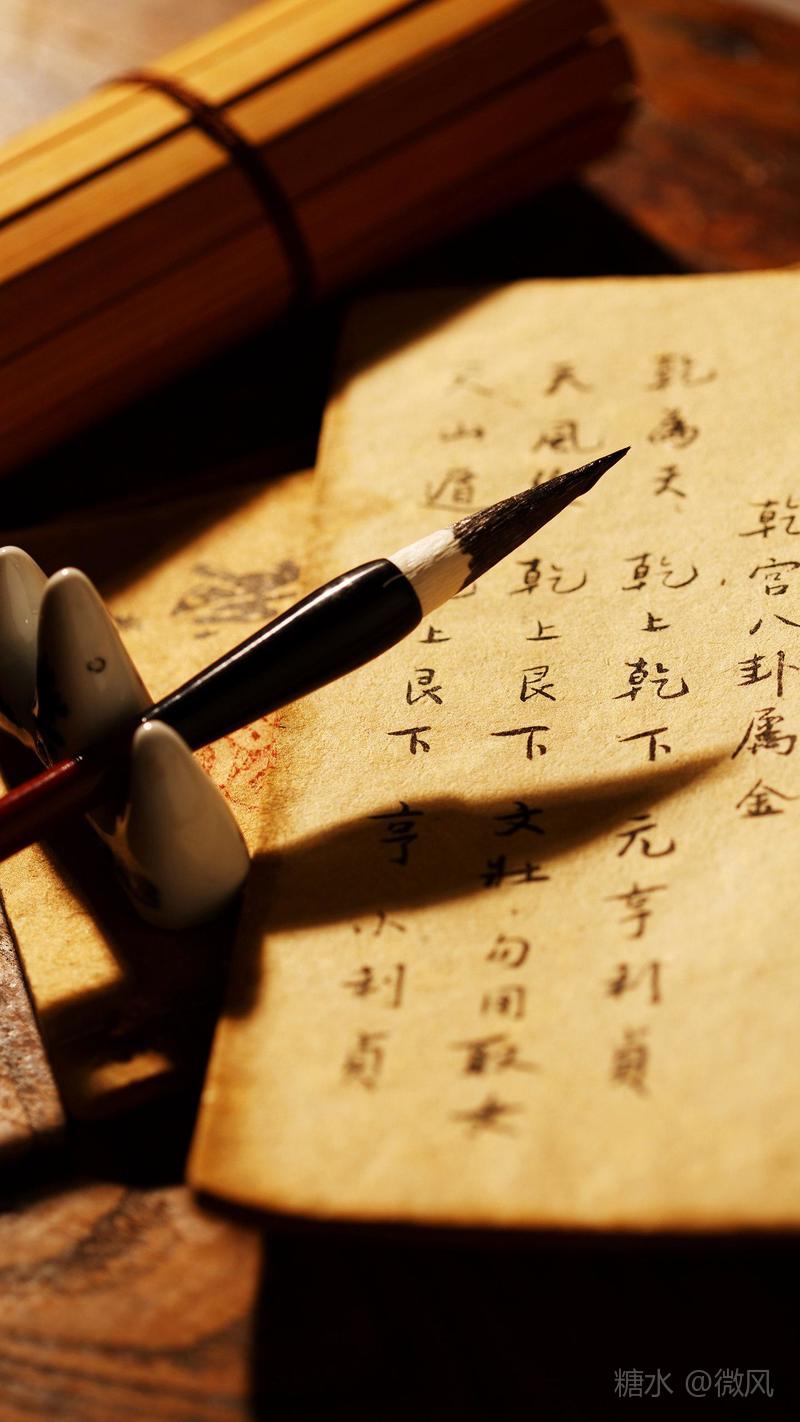 乾宫八卦属金
乾為天 乾上乾下 元亨利貞
天風 乾上艮下 文壯 勿用取女
天山遁 上艮下 亨 小利貞
糖水 @微风